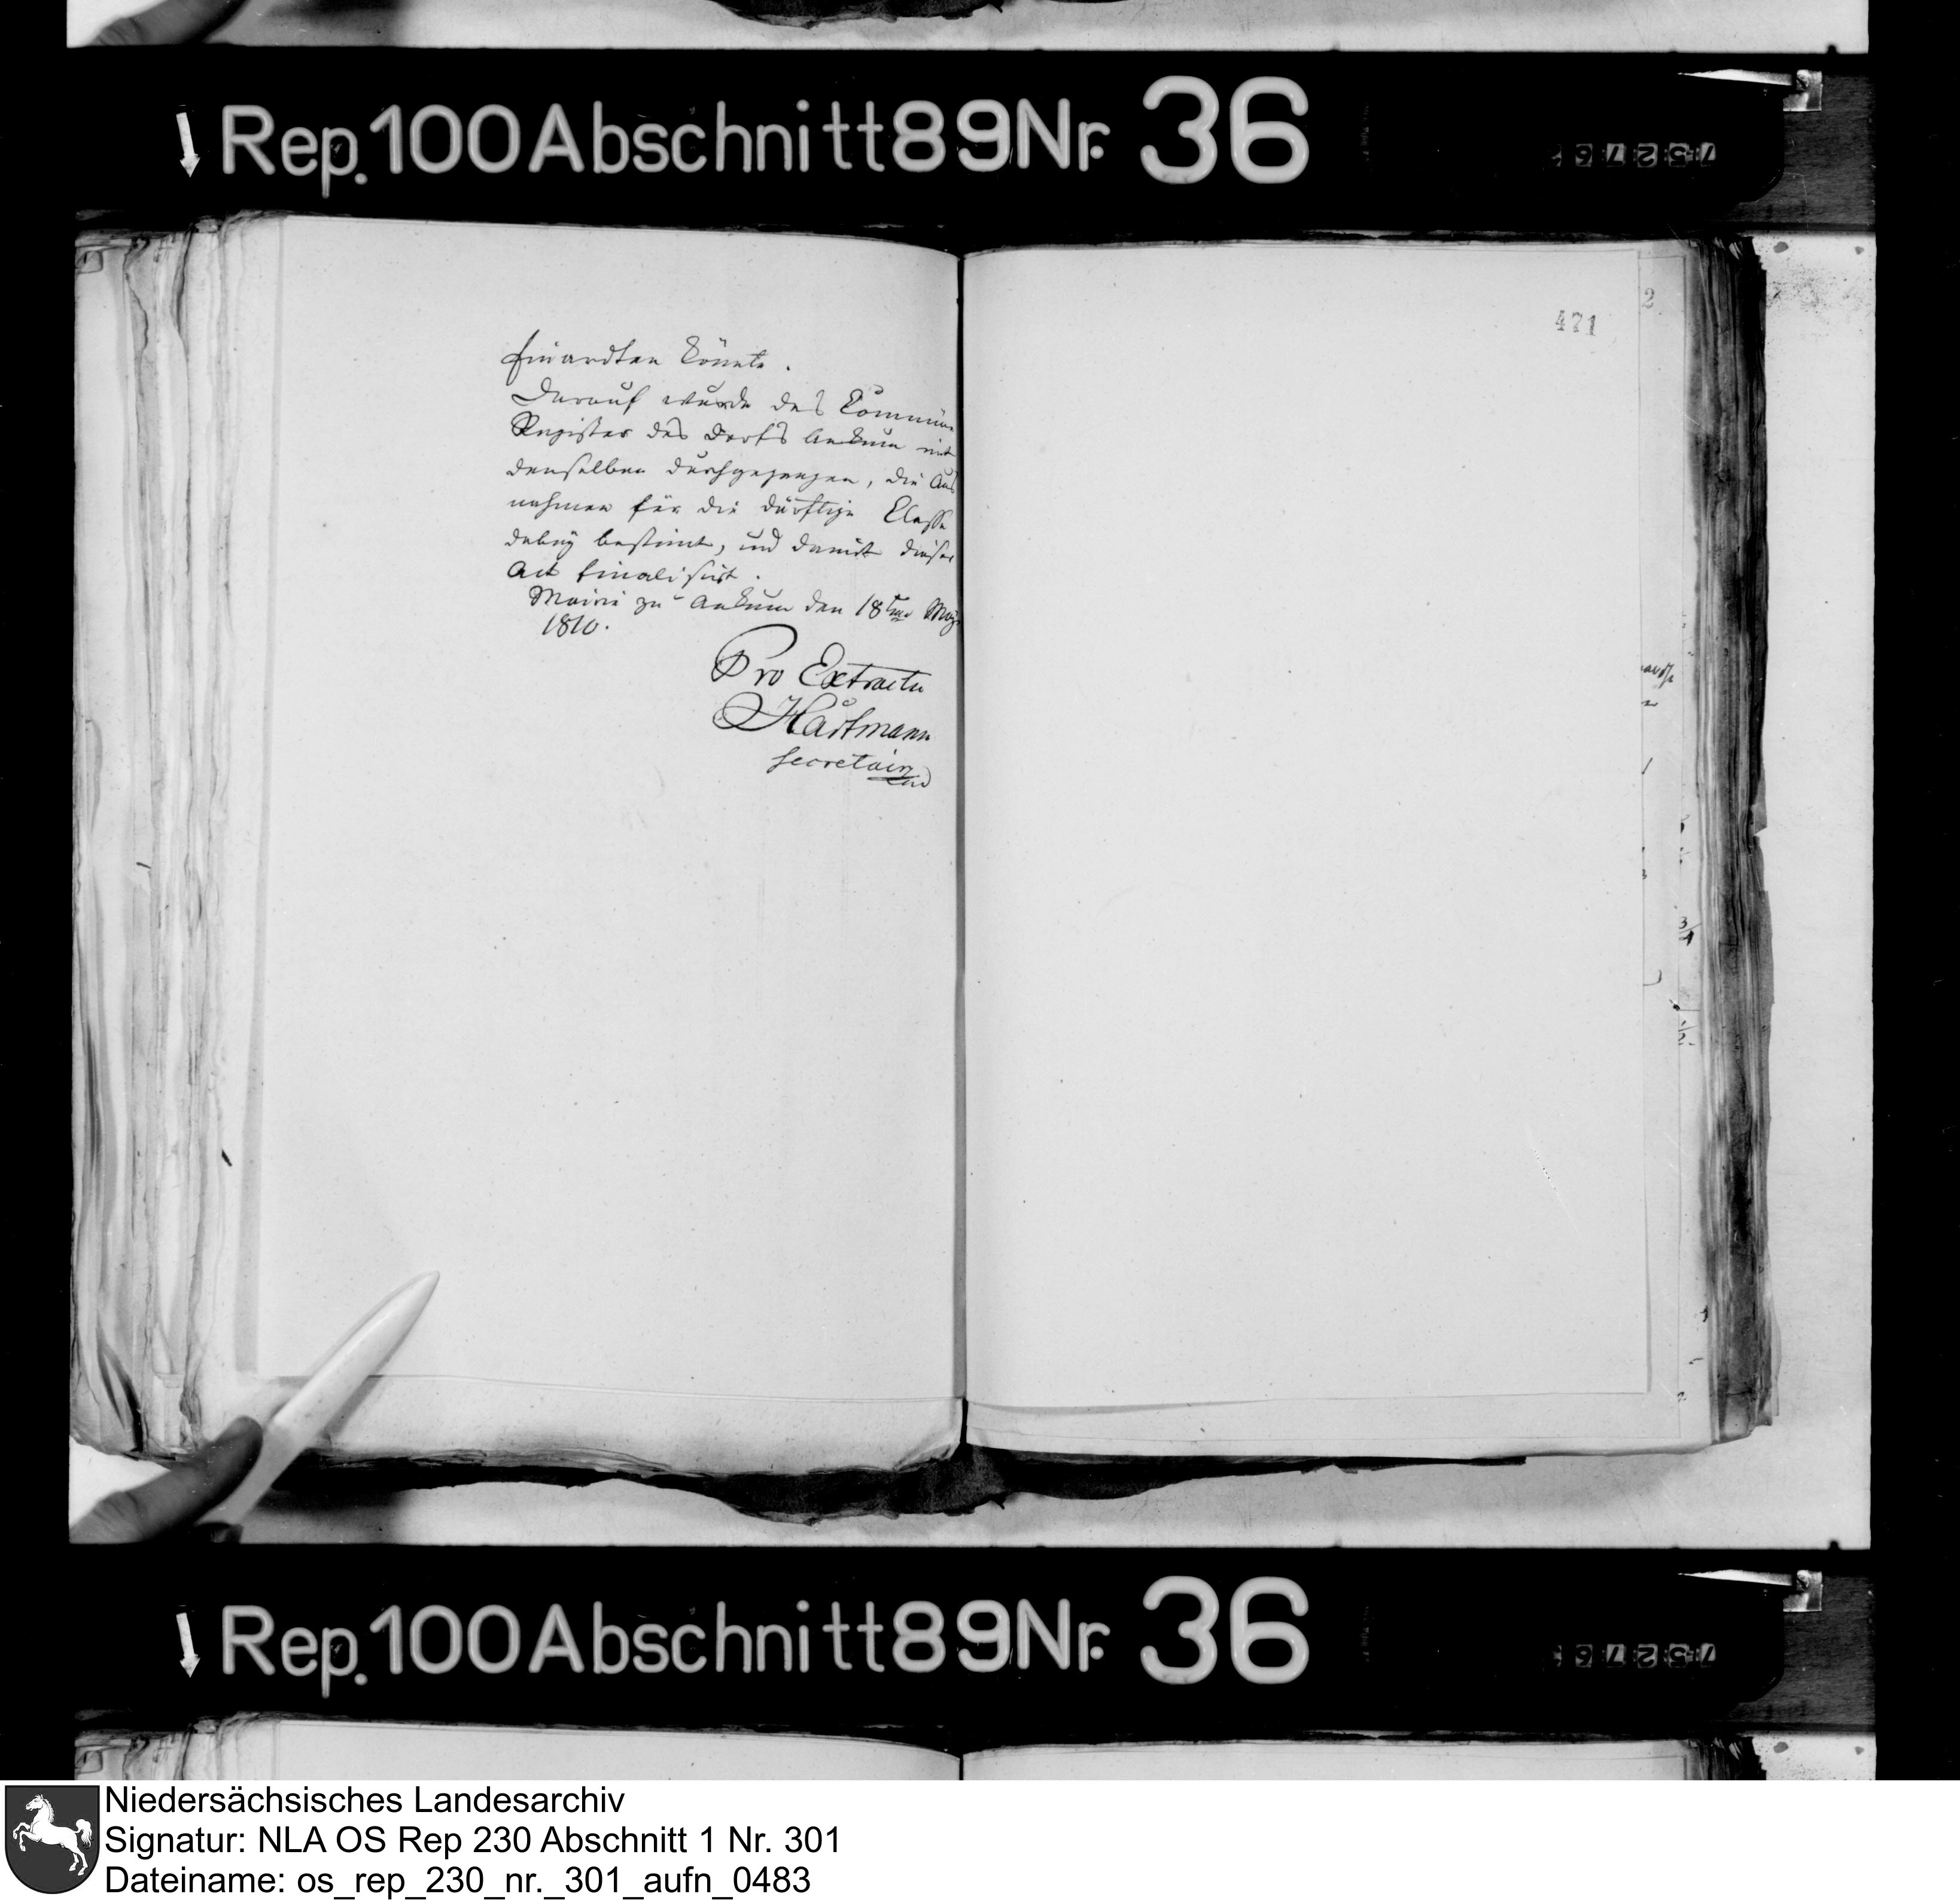 Rep. 100 Abschnitt 89 Nr. 36
471
2
könnte.
Darauf wurde das Commün
Register des Dorfs Ankum mit
denselben durchgegangen, die Aus
nahmen für die dürftige Classe
dabey bestimt, und damit dieser
Act finalisirt.
Mairie zu Ankum den 18ten May
1810.
Pro Extractu
Hartmann
secretair
Rep. 100 Abschnitt 89 Nr. 36
Niedersächsisches Landesarchiv
Signatur: NLA OS Rep 230 Abschnitt 1 Nr. 301
Dateiname: os_rep_230_nr._301_aufn_0483